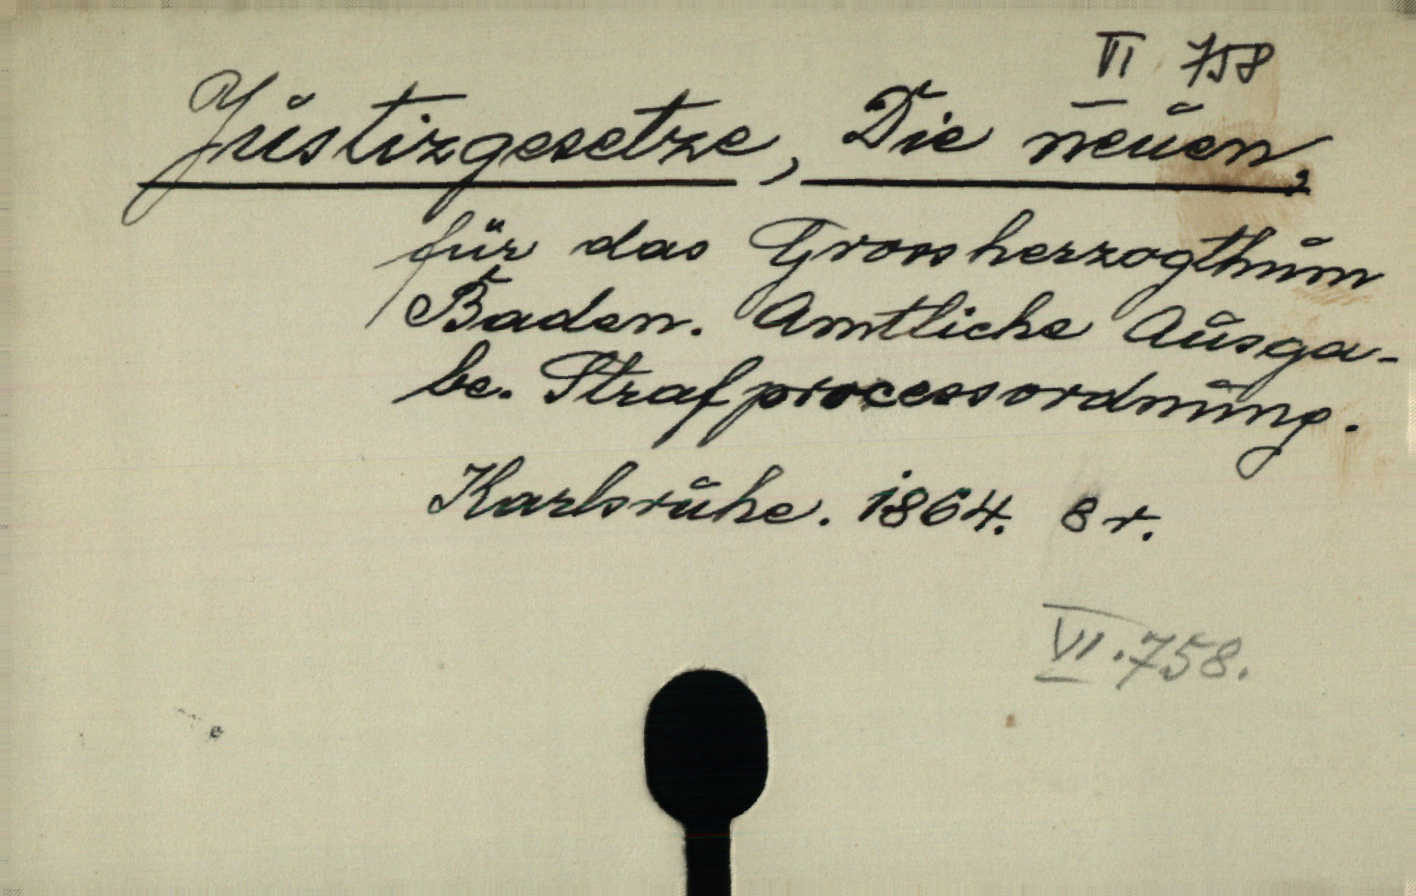 VI 758
Justizgesetze, Die neuen,
für das Grossherzogthum
Baden. Amtliche Ausga-
be. Strafprocessordnung.
Karlsruhe. 1864. 8 r.
VI. 758.